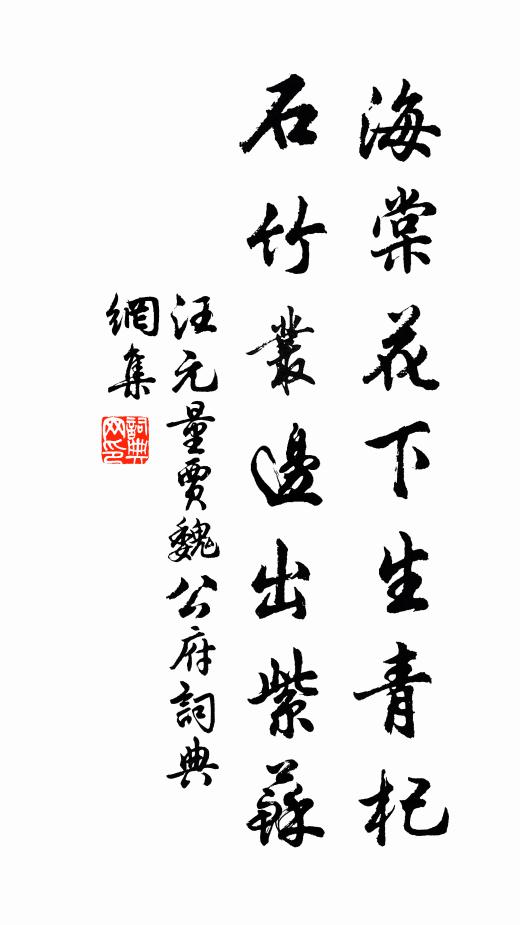 海棠花下生青杞
石竹叢邊出紫蘇
汪元量賈魏公府詞典
網集
詞典網印